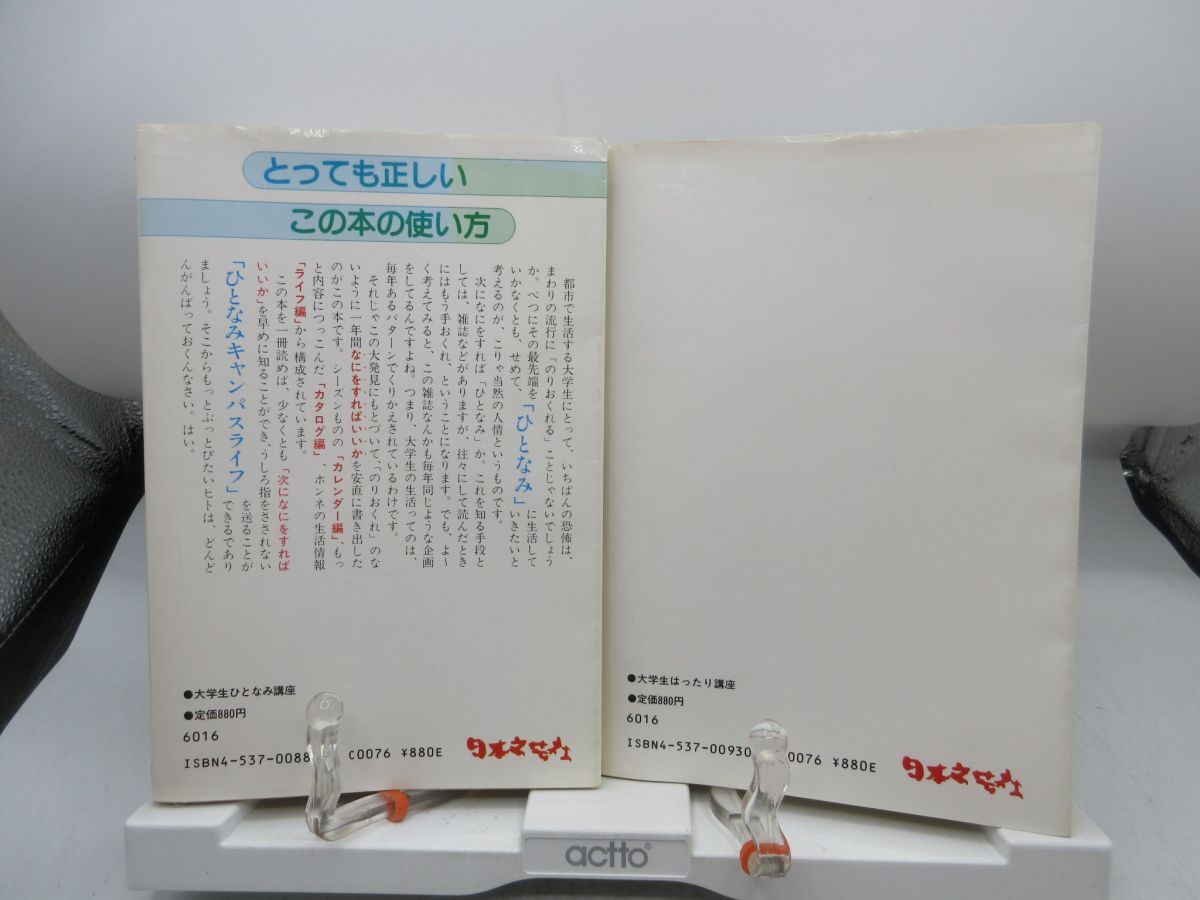 とっても正しい
この本の使い方
都市で生活する大学生にとって、いちばんの恐怖は、
まわりの流行に「のりおくれる」ことじゃないでしょう
か。べつにその最先端を
いかなくとも、せめて、「ひとなみ」に生活して
いきたいと
考えるのが、こりゃ当然の人情というものです。
次になにをすれば「ひとなみ」か。これを知る手段と
しては、雑誌などがありますが、往々にして読んだとき
にはもう手おくれ、ということになります。でも、よ〜
く考えてみると、この雑誌なんかも毎年同じような企画
をしてるんですよね。つまり、大学生の生活ってのは、
毎年あるパターンでくりかえされているわけです。
それじゃこの大発見にもとづいて、「のりおくれ」のな
いように一年間なにをすればいいかを安直に書き出した
のがこの本です。シーズンものの「カレンダー編」、もっ
と内容につっこんだ「カタログ編」、ホンネの生活情報
「ライフ編」から構成されています。
この本を一冊読めば、少なくとも「次になにをすれば
いいか」を早めに知ることができ、うしろ指をさされない
「ひとなみキャンパスライフ」を送ることが
できるであり
ましょう。そこからもっとぶっとびたいヒトは、どんど
んがんばっておくんなさい。はい。
●大学生ひとなみ講座
●定価880円
6016
ISBN4-537-0088
C0076 ¥880E
日本文芸社
●大学生はったり講座
●定価880円
6016
ISBN4-537-00930
0076 ¥880E
日本文芸社
actto®